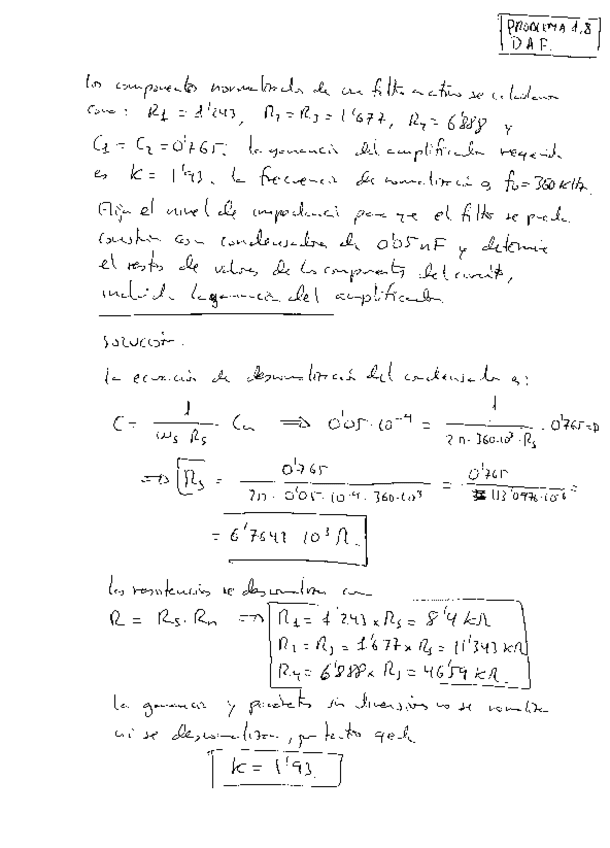 PROBLEMA 1.8
DAF.
Los componentes normalizados de un filtro activo se calcularon
como: R1 = 1'243, R2 = R3 = 1'677, R4 = 6'888 y
C1 = C2 = 0'765. La ganancia del amplificador requerida
es K = 1'93. La frecuencia de normalización es f0 = 360 kHz.
Elija el nivel de impedancia para que el filtro se pueda
construir con condensadores de 0'05 nF y determine
el resto de valores de los componentes del circuito,
incluida la ganancia del amplificador.
SOLUCIÓN.
La ecuación de desnormalización del condensador es:
C = 1 / (ωs Rs) · Cn ⟹ 0'05·10^-9 = 1 / (2π·360·10³·Rs) · 0'765 =>
=> Rs = 0'765 / (2π·0'05·10^-9·360·10³) = 0'765 / (113'0976·10^-6) =
= 6'7641 10³ Ω.
Las resistencias se desnormalizan con
R = Rs·Rn => R1 = 1'243 x Rs = 8'4 kΩ
R2 = R3 = 1'677 x Rs = 11'343 kΩ
R4 = 6'888 x Rs = 46'59 kΩ.
La ganancia y parámetros sin dimensiones no se normalizan
ni se desnormalizan, por tanto queda
K = 1'93.